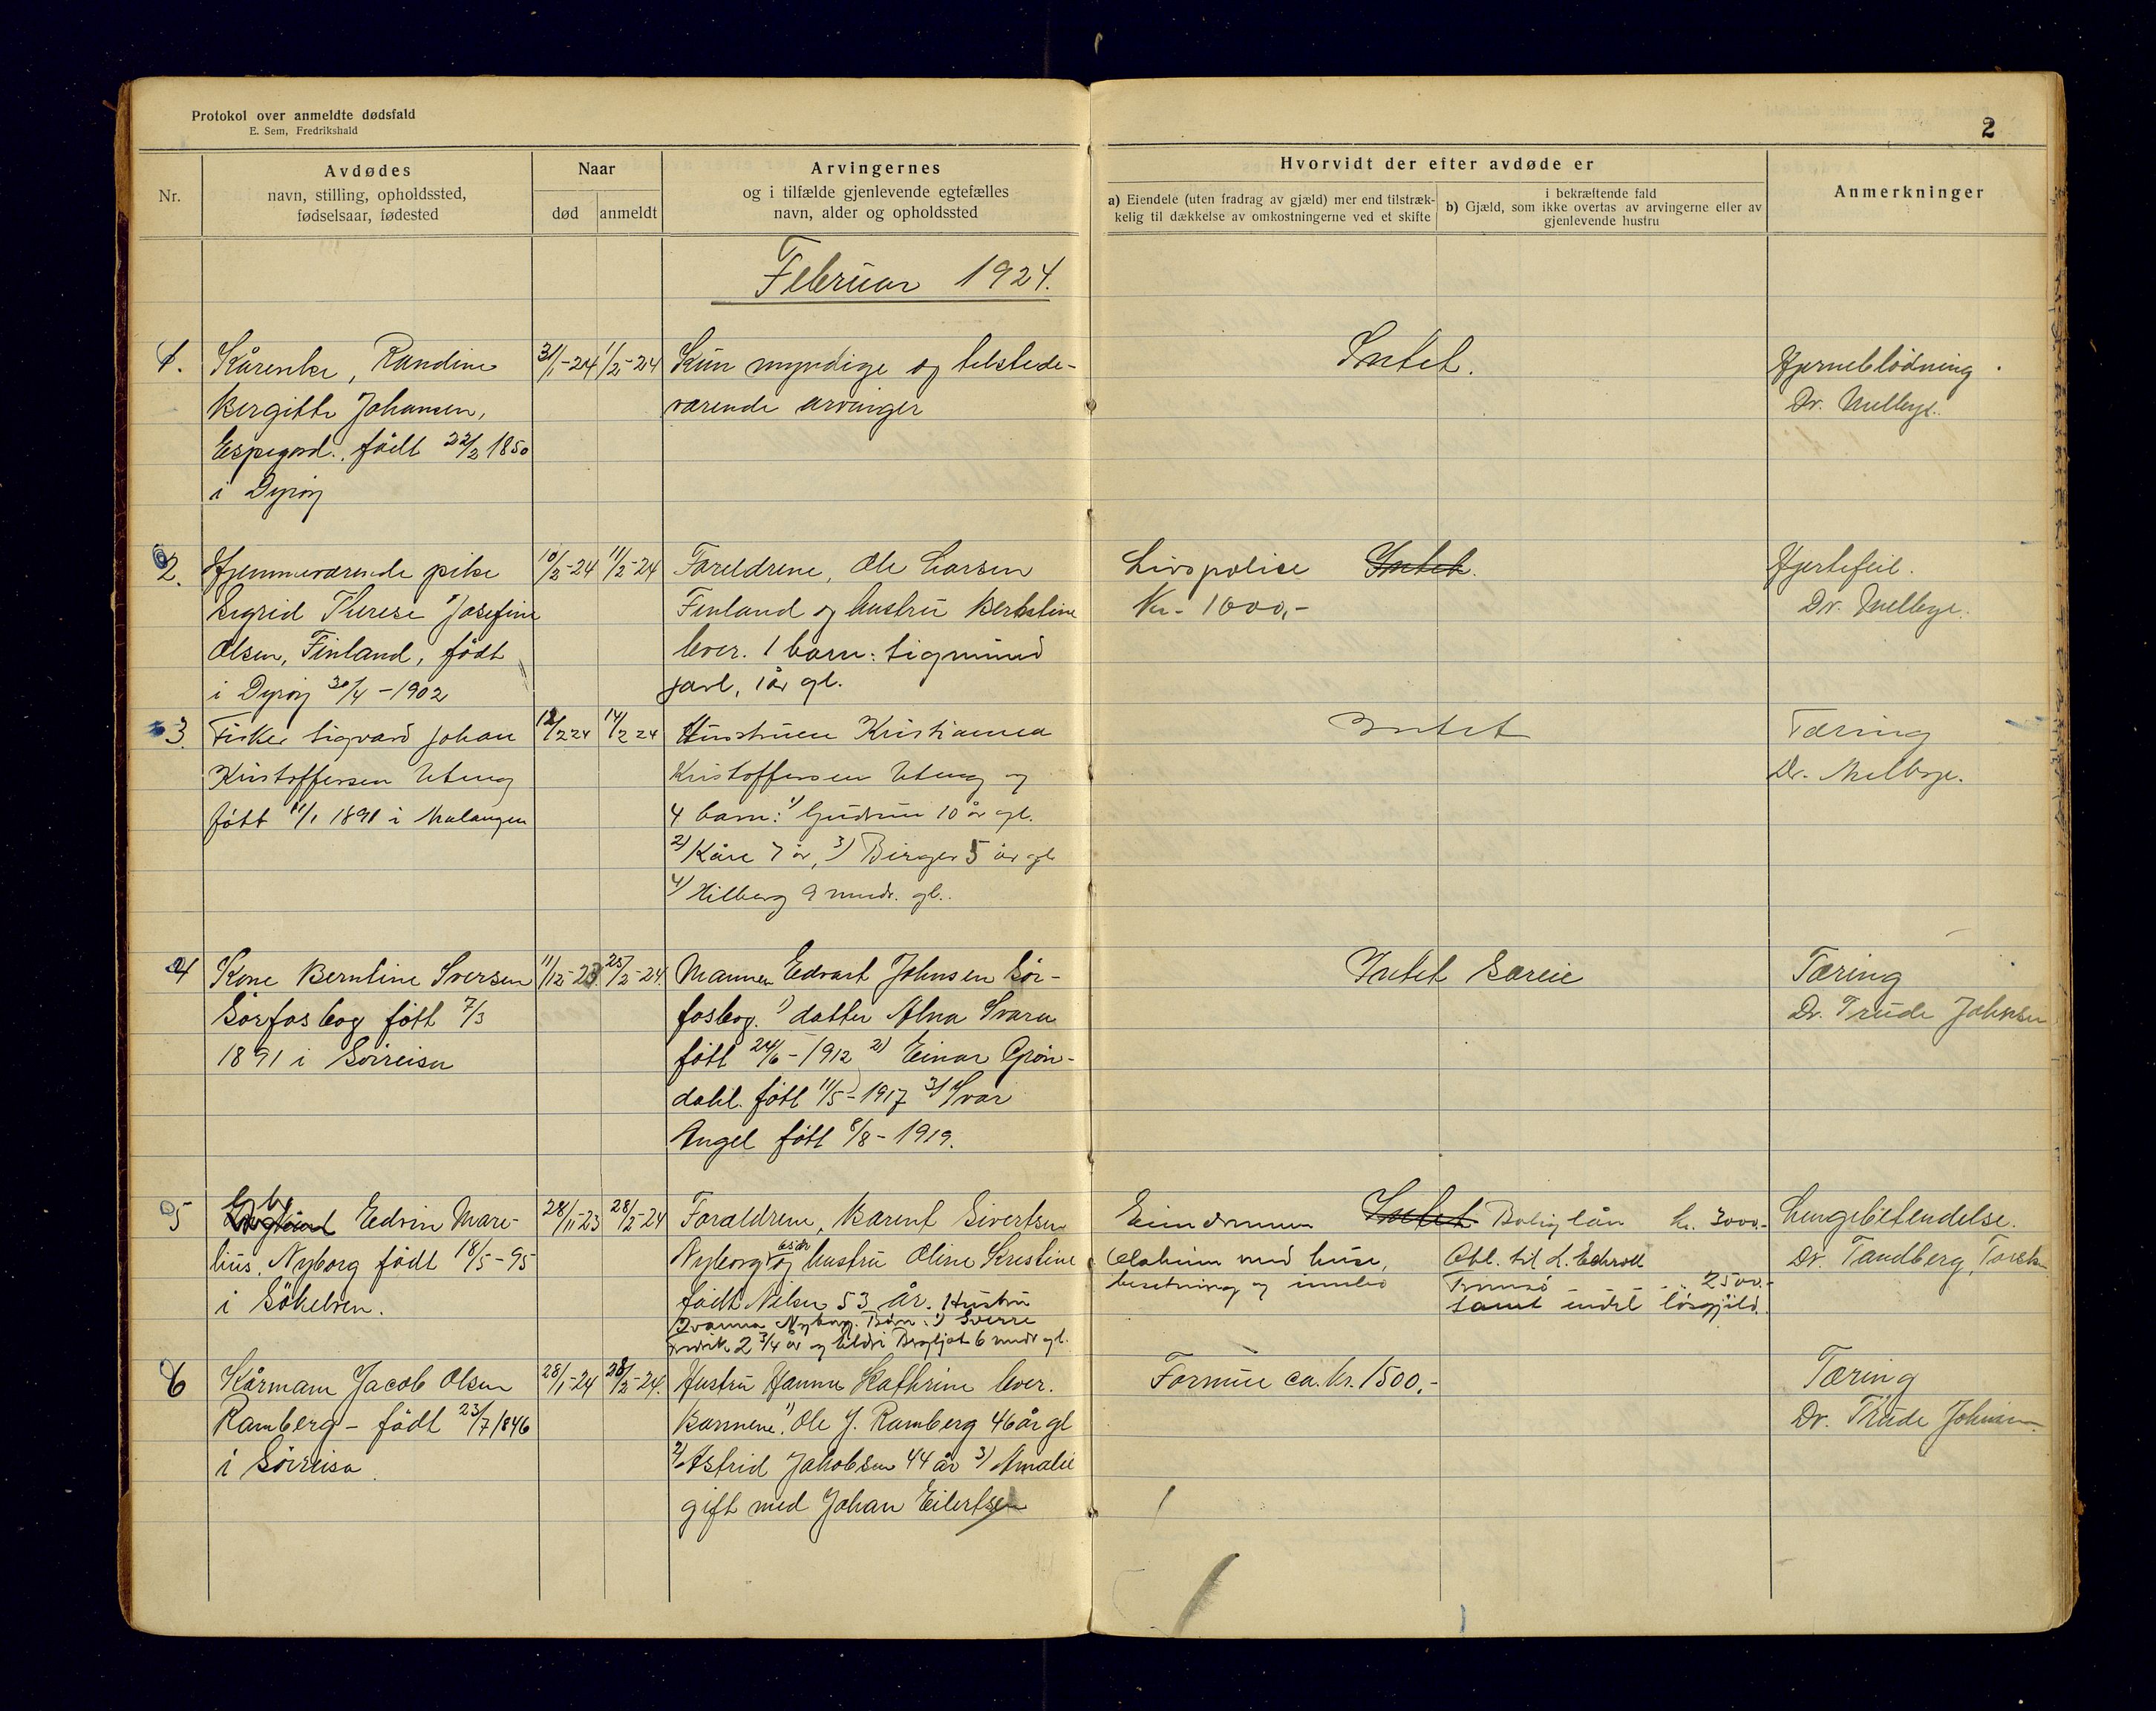 Protokol over anmeldte dødsfald
E. Sem, Fredrikshald
2
Nr.
Avdødes
navn, stilling, opholdssted,
fødselsaar, fødested
Naar
død
anmeldt
Arvingernes
og i tilfælde gjenlevende egtefælles
navn, alder og opholdssted
Hvorvidt der efter avdøde er
a) Eiendele (uten fradrag av gjæld) mer end tilstræk-
kelig til dækkelse av omkostningerne ved et skifte
i bekræftende fald
b) Gjæld, som ikke overtas av arvingerne eller av
gjenlevende hustru
Anmerkninger
Februar 1924.
1.
Kårenke, Randine
Bergitte Johansen,
Espegard. födt 22/2 1850
i Dyröy
31/1-24
1/2-24
Kun myndige og tilstede-
værende arvinger
Intet.
Hjerneblödning.
Dr. Melbye.
2.
Hjemmeværende pike
Sigrid Therese Josefine
Olsen, Finland, födt
i Dyröy 30/4-1902
10/2-24
11/2-24
Foreldrene, Ole Larsen
Finland og hustru Berntine
lever. 1 barn: Sigmund
Jarl, 1 år gl.
Livspolice Intet.
Kr. 1000,-
Hjertefeil.
Dr. Melbye.
3.
Fisker Sigvard Johan
Kristoffersen Uteng
födt 11/1 1891 i Malangen
12/2 24
14/2 24
Hustruen Kristianna
Kristoffersen Uteng og
4 barn: 1) Gudrun 10 år gl.
2) Kåre 7 år, 3) Birger 5 år gl
4) Hilberg 9 mndr. gl.
Intet
Tæring
Dr. Melbye.
4
Kone Berntine Iversen
Sörfosbog födt 7/3
1891 i Sörreisa
11/12-23.
25/2-24.
Mannen Edvart Johnsen Sör-
fosbog. 1) datter Alna Svara
födt 24/6-1912 2) Einar Grön-
dahl. födt 11/5-1917 3) Ivar
Angel födt 8/8-1919.
Intet Særeie
Tæring
Dr. Trude Johnsen
5
Edvin Mare-
lius. Nyborg födt 18/5-95
i Sökelven.
28/11-23
28/2-24
Foraldrene, Barent Sivertsen
Nyborg og hustru Oline Kristine
födt Nilsen 53 år. Hustru
Ivanna Nyborg. Barn: 1) Sverre
Fredrik 2 3/4 år og Eldri Bergljot 6 mndr gl.
Eiendommen Intet Boliglån kr. 3000.-
Olaheim med huse, Obl. til L. Echroll
besetning og innbo Tromsö - - 2500.-
samt endel lösgjeld.
Lungebetendelse.
Dr. Tandberg, Torsken
6
Kårmann Jacob Olsen
Ramberg - födt 23/7 1846
i Sörreisa
28/1-24
28/2-24.
Hustru Hanna Kathrine lever.
Barnene 1) Ole J. Ramberg 46 år gl
2) Astrid Jakobsen 44 år 3) Amalie
gift med Johan Eilertsen
Formue ca. kr. 1500.-
Tæring
Dr. Trude Johnsen.